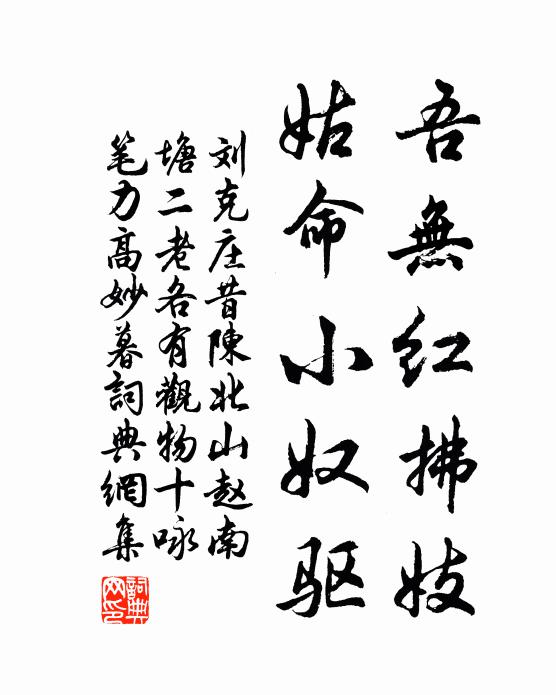 吾無红拂妓
姑命小奴驱
刘克庄昔陳北山赵南
塘二老各有觀物十咏
笔力高妙暮詞典網集
詞典網印